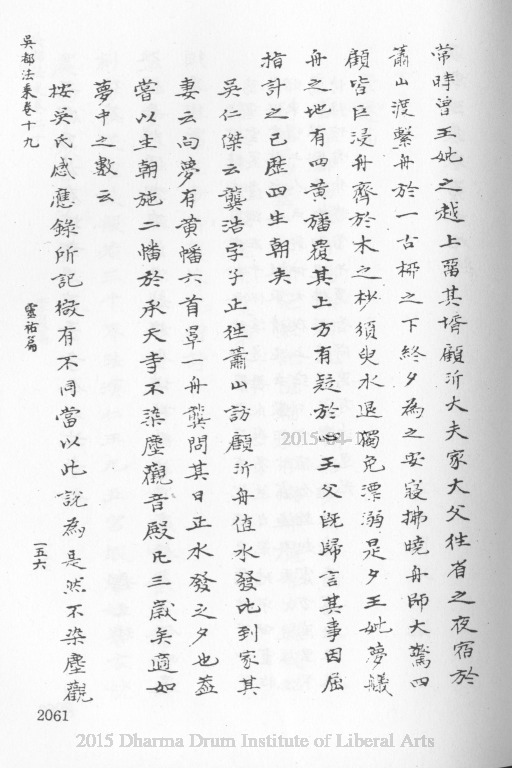 常時曾王妣之越上留其壻顧沂大夫家大父徃省之夜宿於
蕭山渡繫舟於一古柳之下終夕為之安寢拂曉舟師大驚四
顧皆巨浸舟齊於木之杪須臾水退獨免漂溺是夕王妣夢艤
舟之地有四黃旛覆其上方有疑於王父既歸言其事因屈
指計之已歴四生朝矣
吳仁傑云龔浩字子正徃蕭山訪顧沂舟值水發比到家其
妻云向夢有黃幡六首罩一舟龔問其日正水發之夕也蓋
嘗以生朝施二幡於承天寺不染塵觀音殿凡三歲矣適如
夢中之數云
按吳氏感應錄所記微有不同當以此說為是然不染塵觀
吳都法乘卷十九
靈祐篇
一五六
2061
2015-04-
2015 Dharma Drum Institute of Liberal Arts